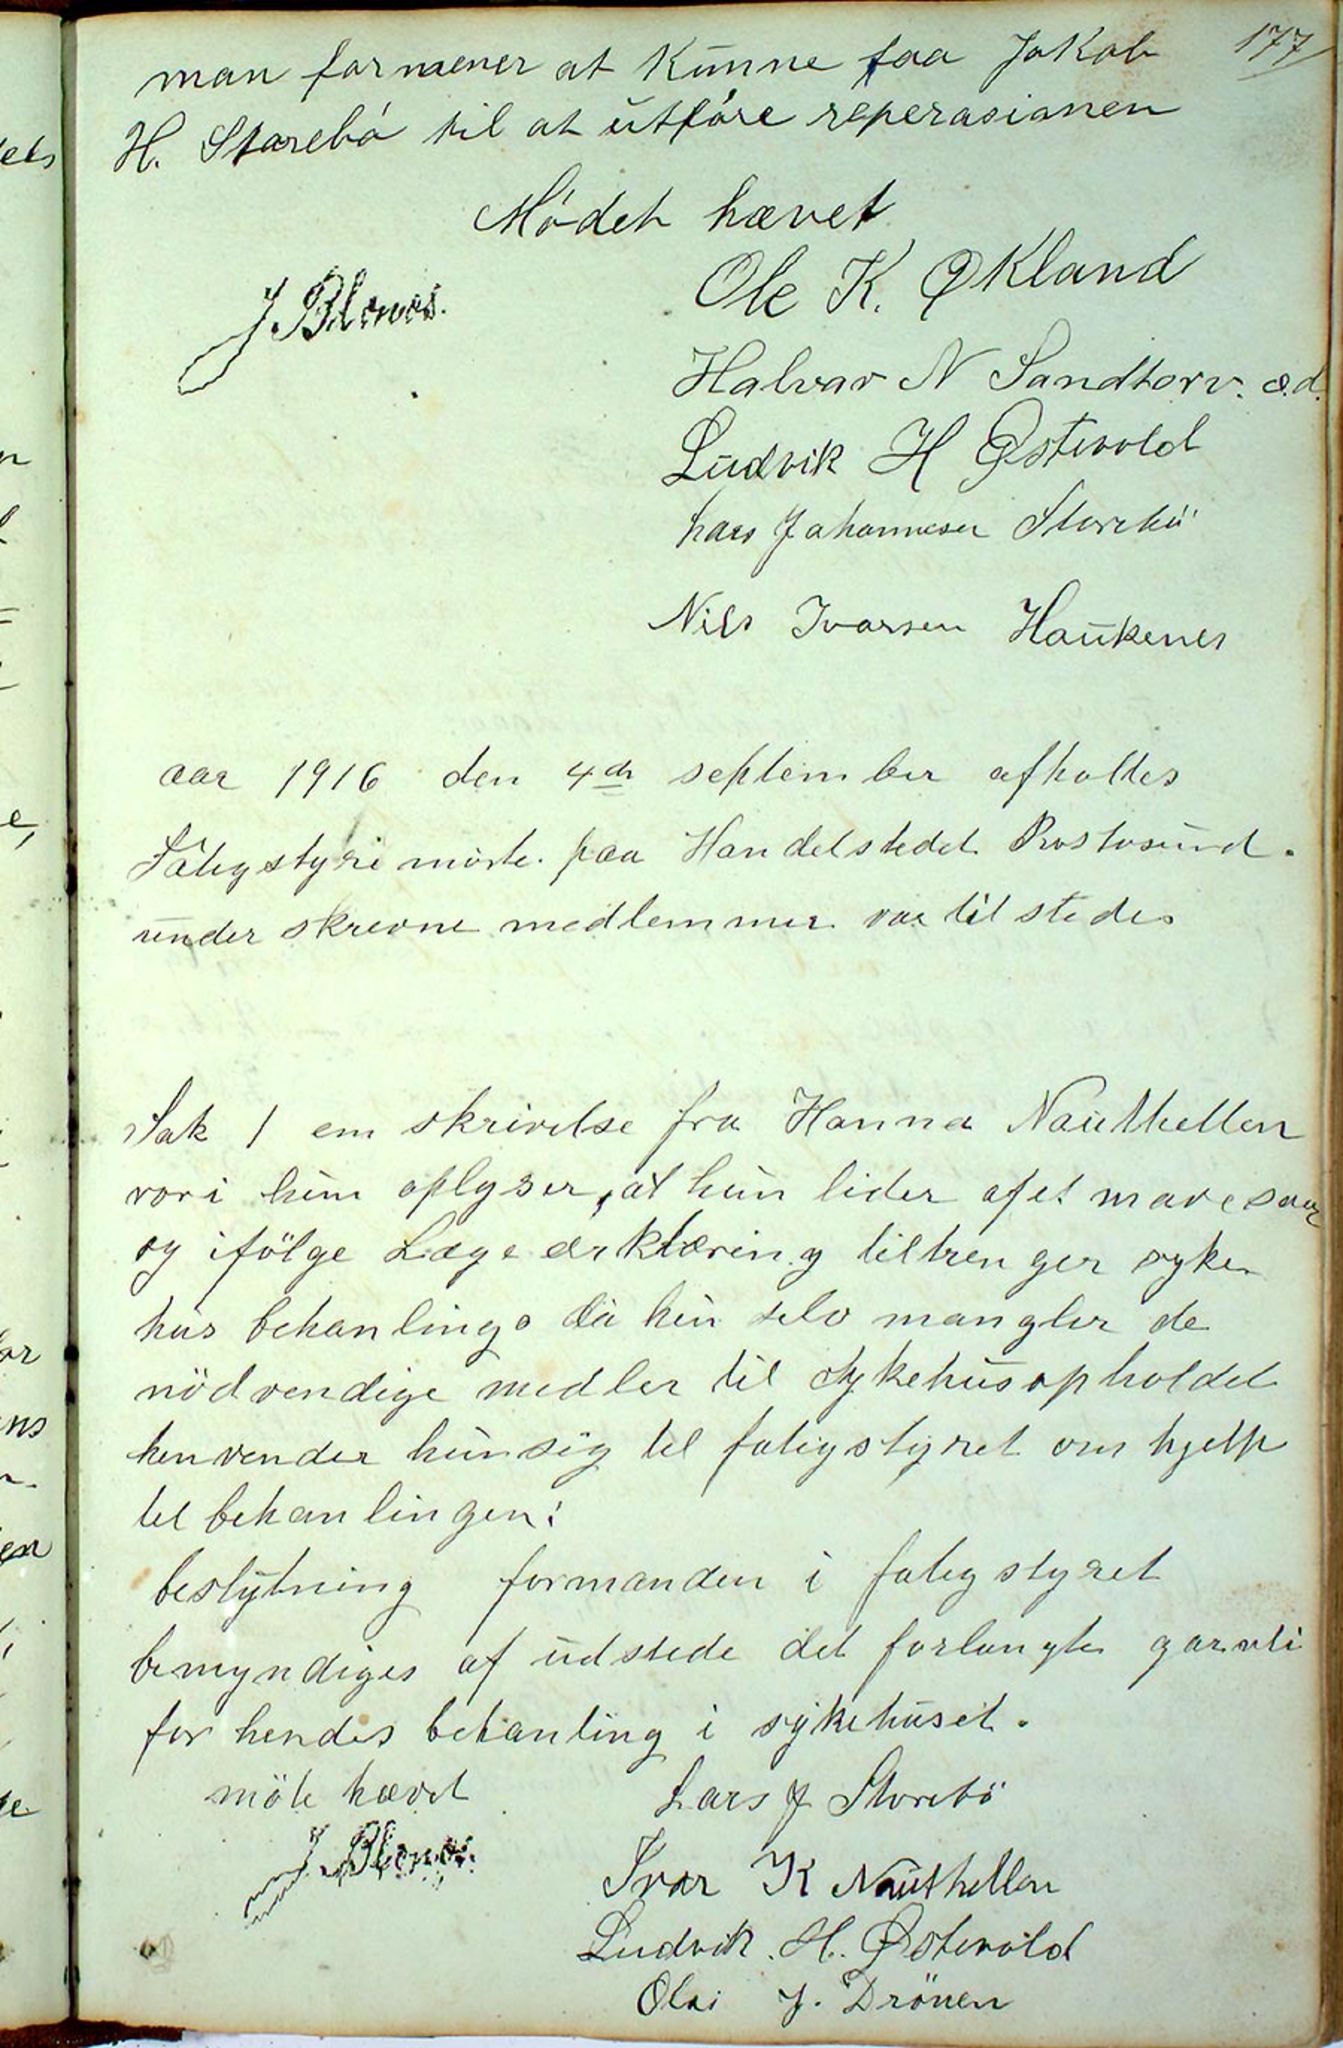 177
man formener at Kunne faa Jakob
H. Storebö til at utföre reperasionen
Mödet hævet
J. Blænes.
Ole K. Økland
Halvar N Sandtorv. o.d.
Ludvik H Østevold
Lars Johannesen Storebö
Nils Ivarsen Haukenes
aar 1916 den 4de september afholtes
Fatigstyre möte. paa Handelstedet Rostosund.
under skrevne medlemmer var til stedes
Sak 1 em skrivelse fra Hanna Nauthellen
vori hun oplyser, at hun lider af et mavesaar
og ifölge Læge ærklæring tiltrenger syke
hus behanling. da hun selv mangler de
nödvendige medler til sykehusopholdet
henvender hun sig til fatigstyret om hjelp
til behanlingen:
beslutning formanden i fatigstyret
bemyndiges af udstede det forlangte garnti
for hendes behanling i sykehuset.
möte hævet
Lars J Storebö
J. Blænes.
Ivar K Nauthellen
Ludvik. H. Østevold
Olai J. Drönen